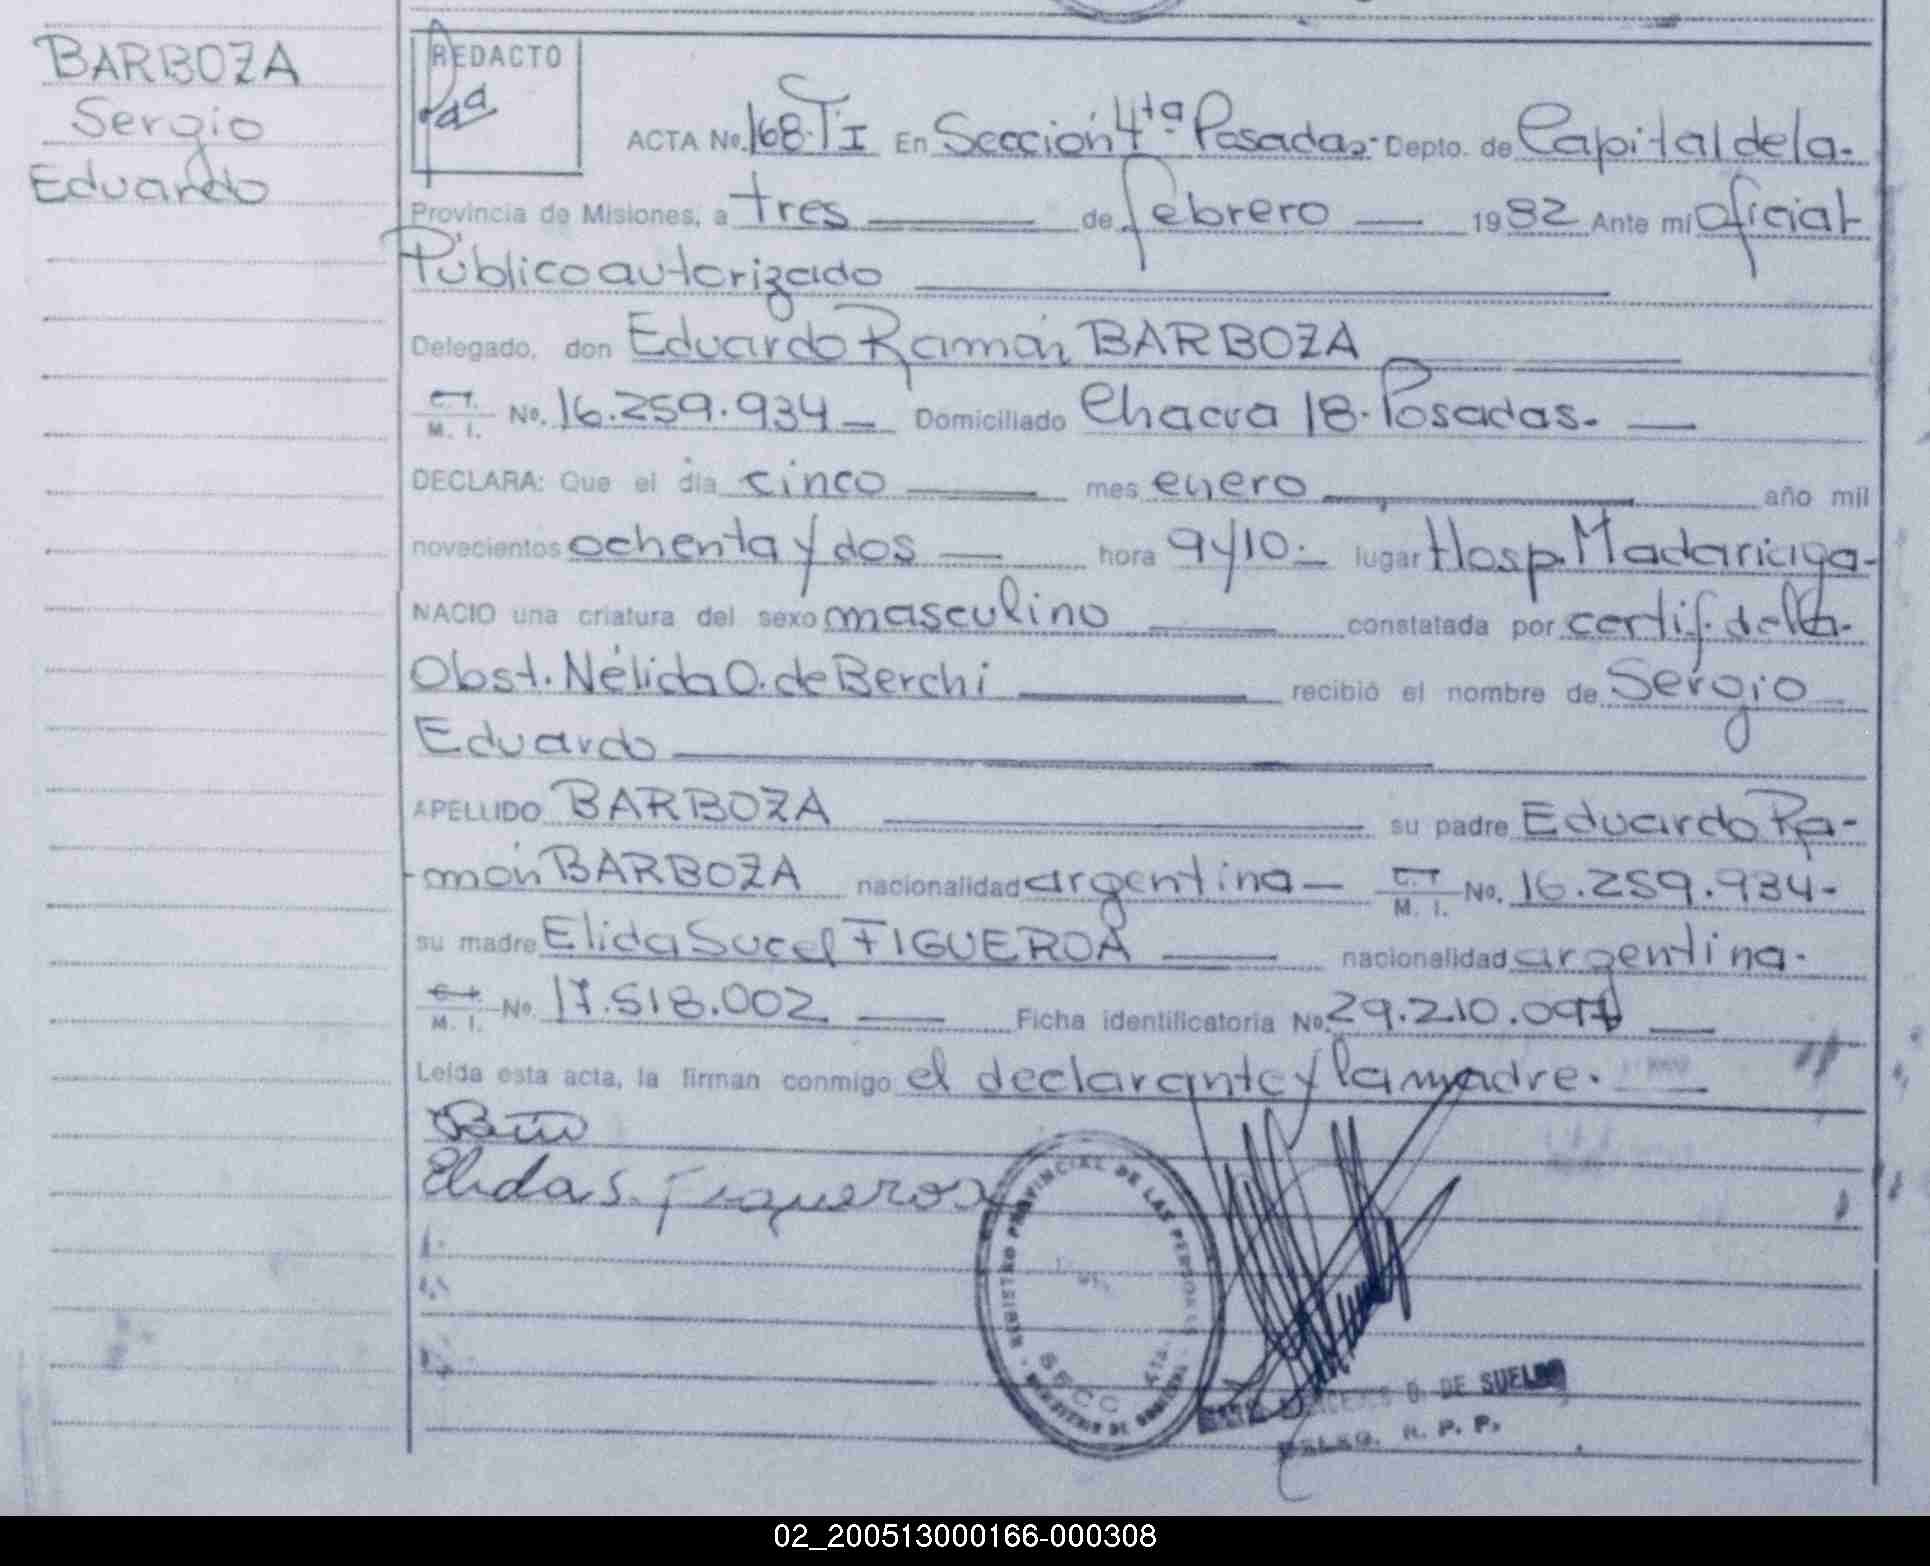 BARBOZA
Sergio
Eduardo
REDACTO
ACTA No. 168.TI En Sección 4ta Posadas- Depto. de Capital de la.
Provincia de Misiones, a tres de febrero 1982 Ante mí oficial
Público autorizado
Delegado, don Eduardo Ramón BARBOZA
C. I. M. I. No. 16.259.934 Domiciliado Chacra 18. Posadas.
DECLARA: Que el dia cinco mes enero año mil
novecientos ochenta y dos hora 9 y 10.- lugar Hosp. Madariaga-
NACIO una criatura del sexo masculino constatada por certif. de la
Obst. Nélida O. de Berchi recibió el nombre de Sergio
Eduardo
APELLIDO BARBOZA su padre Eduardo Ra-
món BARBOZA nacionalidad argentina- C. I. M. I. No. 16.259.934-
su madre Elida Sucel FIGUEROA nacionalidad argentina.
M. I. No. 17.518.002 Ficha identificatoria No. 29.210.09
Leida esta acta, la firman conmigo el declarante y la madre.
Elida S. Figueroa
REGISTRO PROVINCIAL DE LAS PERSONAS
SECC 4TA.
DE SUELDO
DELEG. R. P. P.
02_200513000166-000308